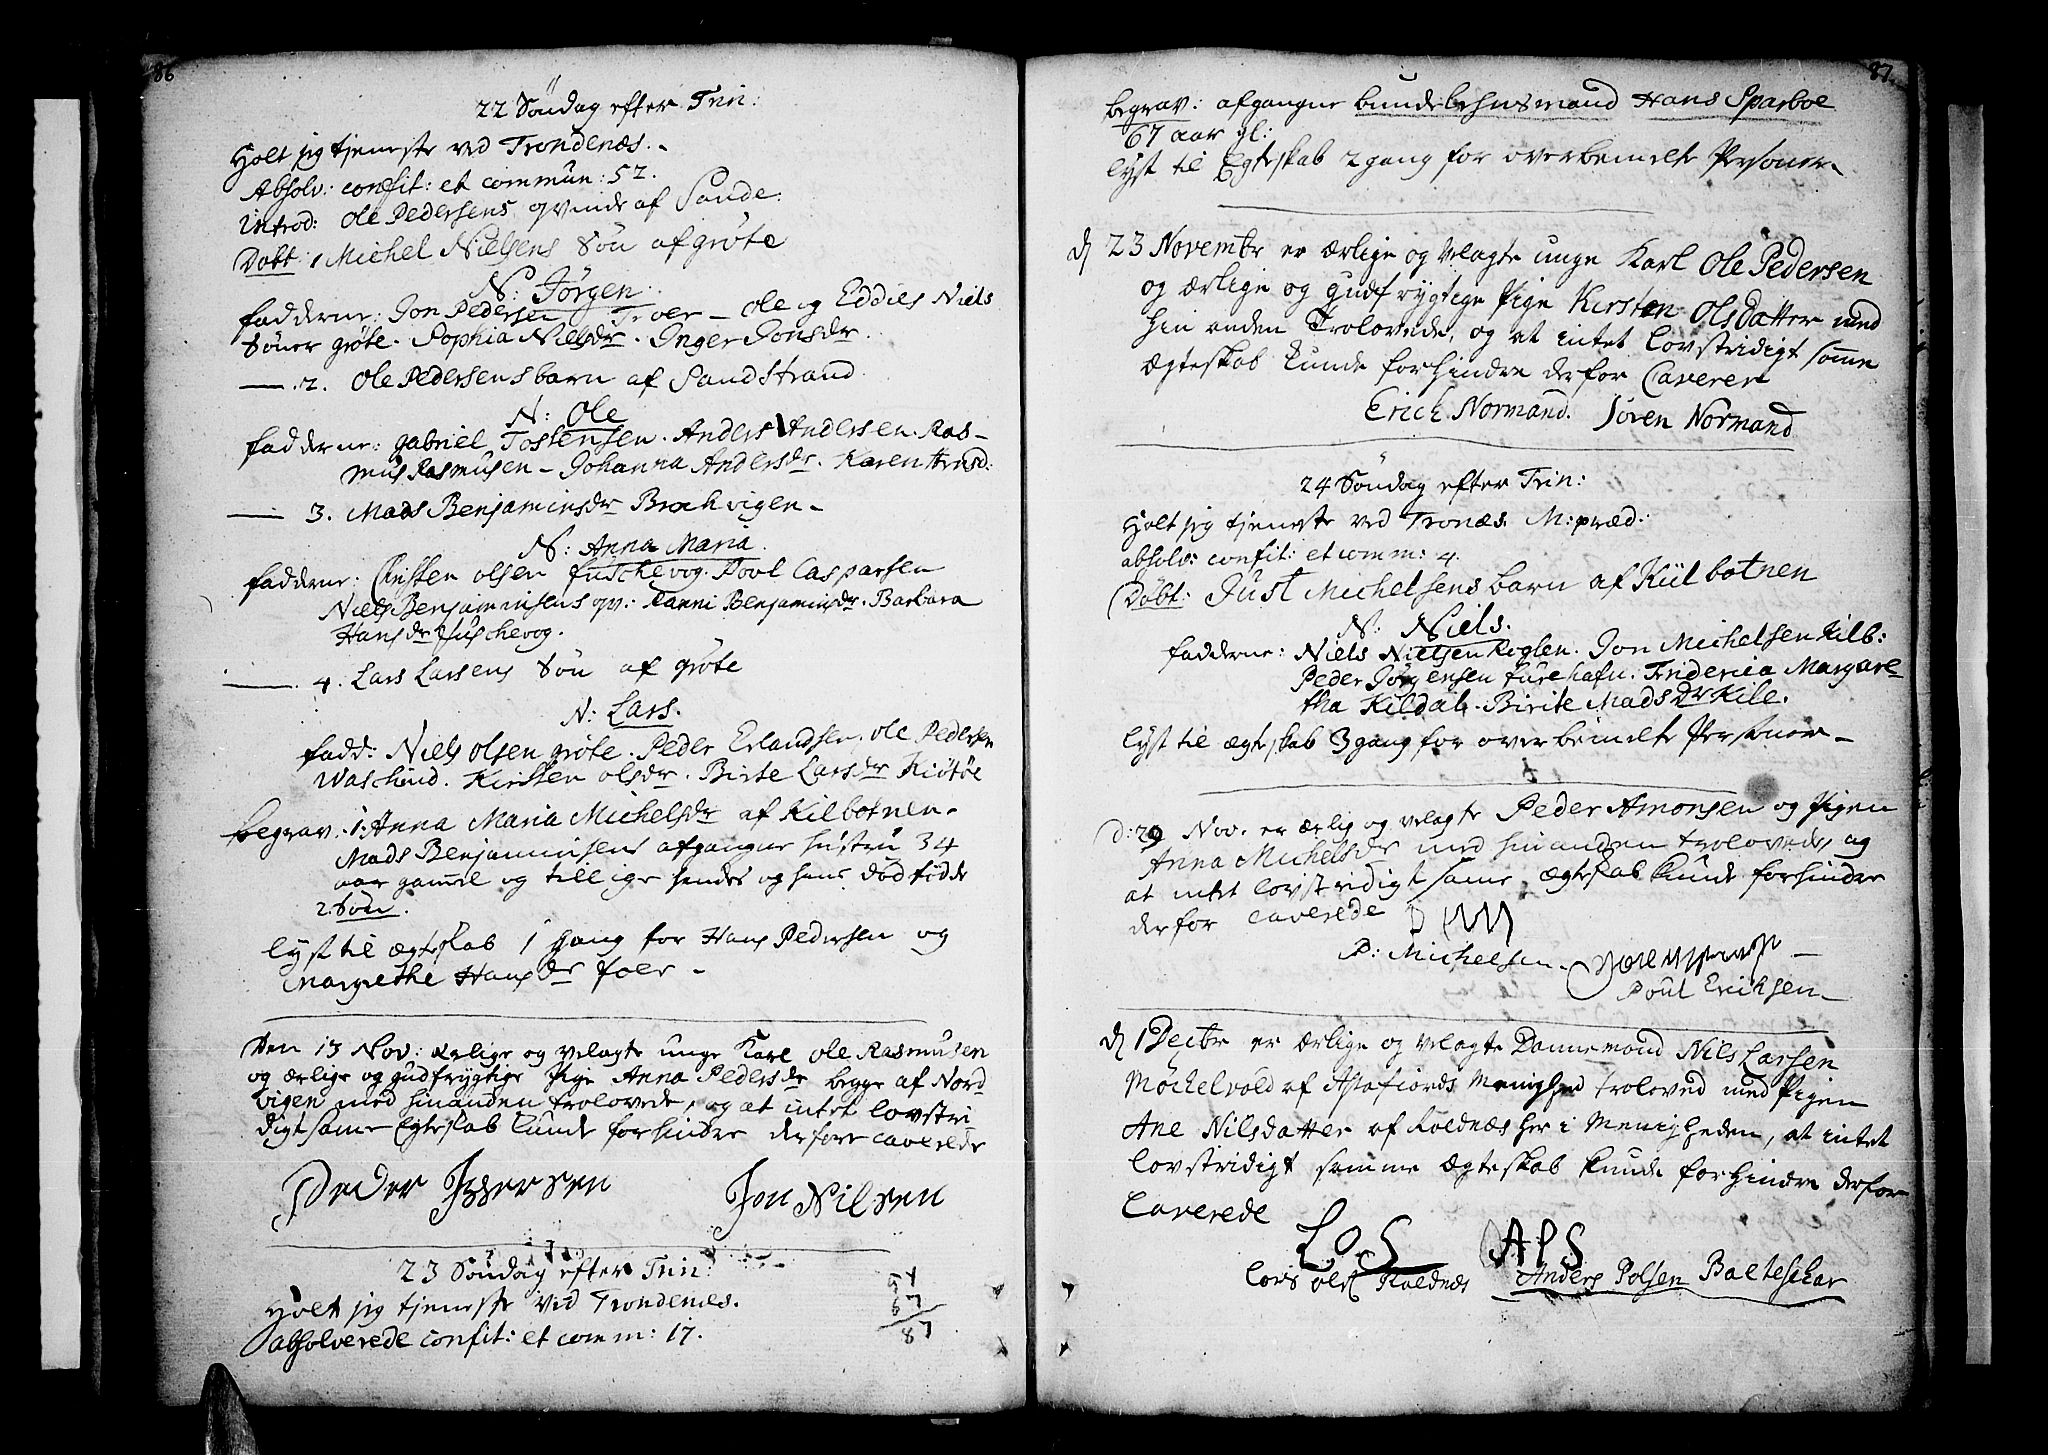 86
22 Söndag efter Trin:
Holt jeg tjeneste ved Trondenæs.
Absolv: confit: et commun: 52.
Introd: Ole Pedersens qvinde af Sande:
Døbt: 1 Michel Nielsens Sön af gröte
N: Jörgen.
fadderne: Jon Pedersen – Ole og Eddies Niels
Söner gröte. Sophia Nielsdr. Inger Jonsdr.
—. 2. Ole Pedersens barn af Sandstrand
N: Ole
fadderne: Gabriel Tostensen. Anders Andersen. Ras-
mus Rasmusen – Johanna Andersdr. Karen
— 3. Mads Benjaminsdr Brochvigen –
N: Anna Maria
fadderne: Christen Olsen fuschevog. Povl Casparsen
Niels Benjaminsens qv: Benjaminsdr. Barbara
Hansdr fuschevog.
—. 4. Lars Larsens Sön af gröte
N: Lars.
fadd: Niels Olsen gröte. Peder Erlandsen. Ole Pedersen
Waschind. Kirsten Olsdr. Birte Larsdr Kiötöe
Begrav. 1. Anna Maria Michelsdr af Kilbotnen.
Mads Benjaminsens afgangne hustru 34
aar gammel og tillige hendes og hans dödfödde
2. Sön.
lyst til ægteskab 1 gang for Hans Pedersen og
Margrethe Hansdr foer –
Den 13 Nov: ærlige og velagte unge Karl Ole Rasmusen
og ærlige og gudfrygtige Pige Anna Pedersdr begge af Nord
vigen med hinanden trolovede, og at intet lovstri
digt same Egteskab kunde forhindre derfore caverede
Peder Iversen Jon Nilsen
23 Söndag efter Trin:
Holt jeg tjeneste ved Trondenæs.
absolverede confit: et comm: 17.
87
87.
begrav: afgangne bundelehnsmand Hans Sparboe
67 aar gl:
lyst til Egteskab 2 gang for overbemelte Personer.
d 23 Novembr er ærlige og velagte unge Karl Ole Pedersen
og ærlige og gudfrygtige Pige Kirsten Olsdatter med
hin anden Trolovede, og at intet lovstridigt samme
ægteskab kunde forhindre derfor Caverer
Erich Normand. Sören Normand
24 Söndag efter Trin:
Holt jeg tjeneste ved Tronæs. M: præd:
absolv: confit: et comm: 4.
Døbt: Just Michelsens barn af Kiilbotnen
N: Niels.
fadderne: Niels Nielsen Roglen. Jon Michelsen Kilb:
Peder Jörgensen furehafn. Fridericia Margare
tha Kildal. Birite Madsdr Kile.
lyst til ægteskab 3 gang for overbemelte Personer –
d: 29 Nov. er ærlig og velagte Peder Amonsen og Pigen
Anna Michelsdr med hinanden trolovede, og
at intet lovstridigt same ægteskab kunde forhindre
derfor caverede
P: Michelsen.
Poul Eriksen –
d 1 Decbr er ærlige og velagte Dannemand Nils Larsen
Möckelvold af Astafiords Menighed trolovid med Pigen
Ane Nilsdatter af Roldnæs her i Menigheden, at intet
lovstridigt samme ægteskab kunde forhindre derfor
Caverede
LOS APS
Lars Olss Roldnæs Anders Polsen Balteschar